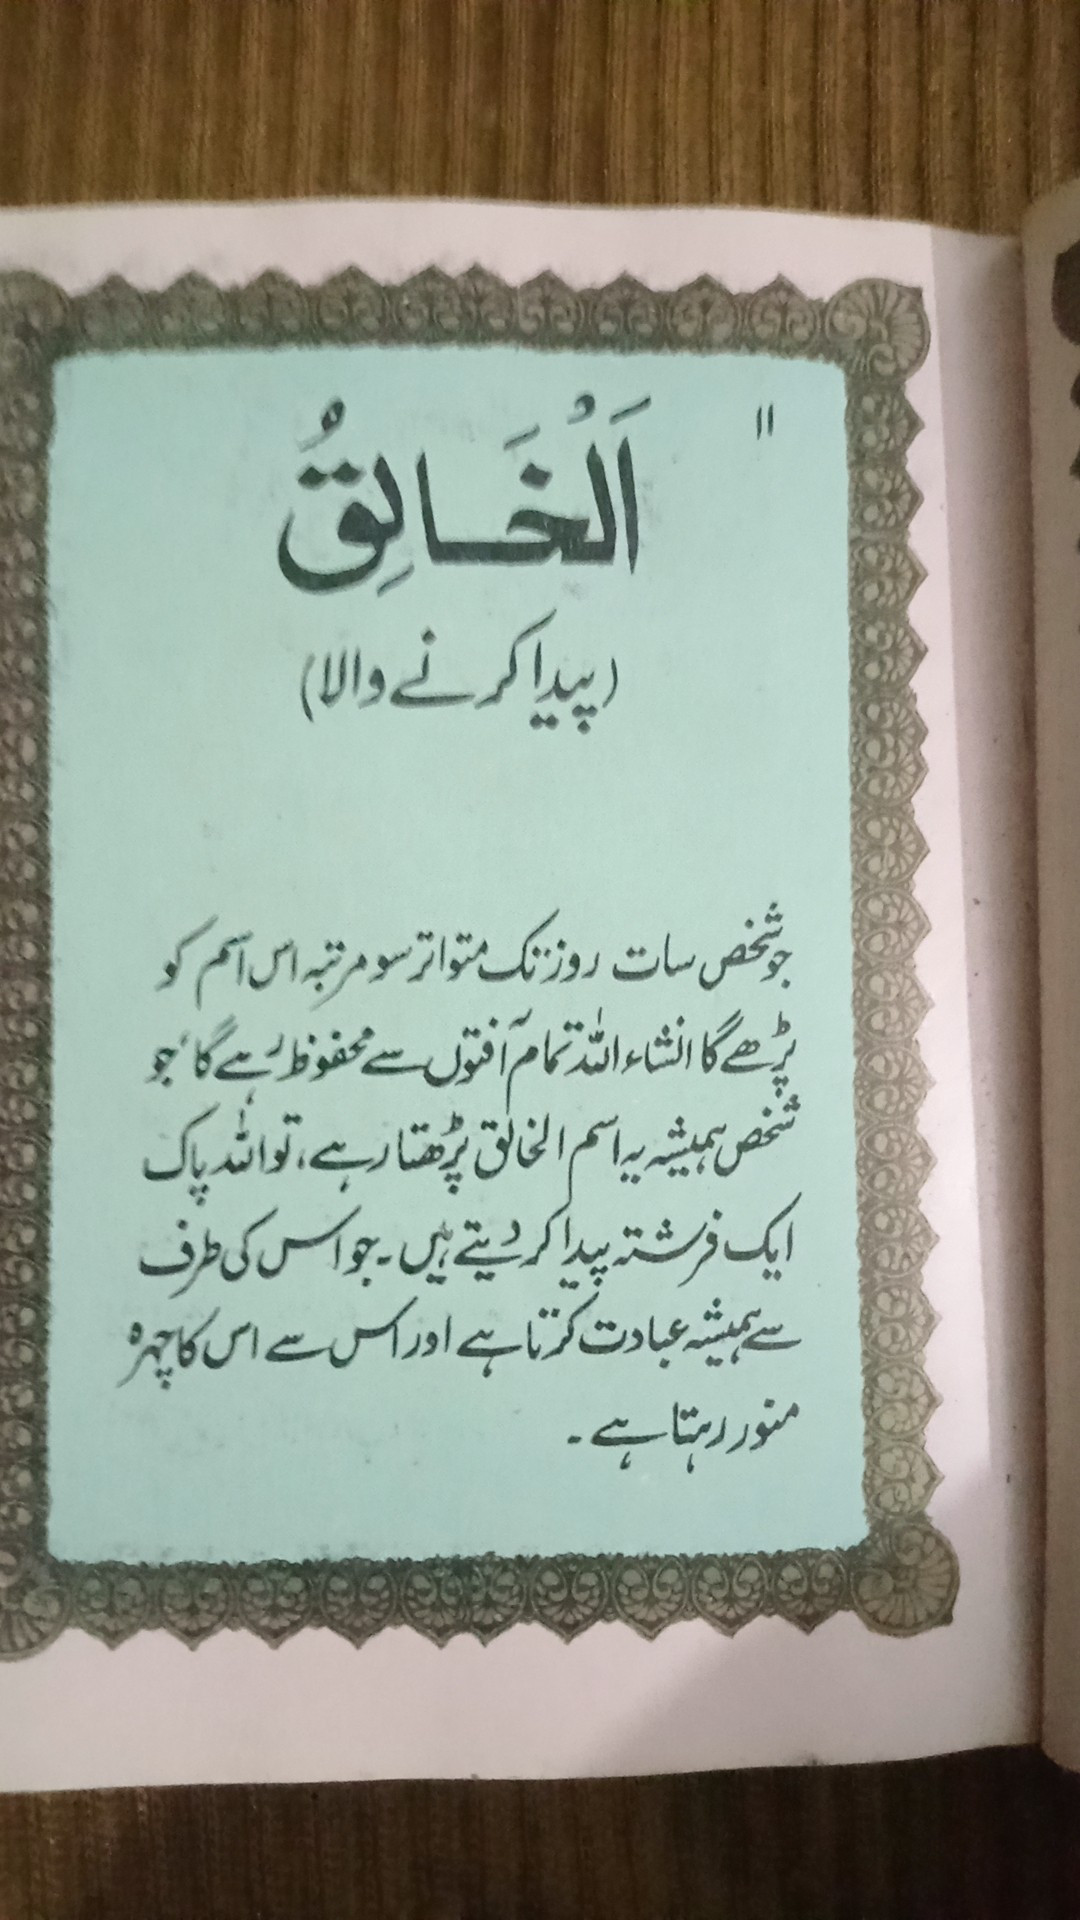 ۱۱
اَلْخَالِقُ
(پیدا کرنے والا)
جو شخص سات روز تک متواتر سو مرتبہ اس اسم کو
پڑھے گا انشاء اللہ تمام آفتوں سے محفوظ رہے گا، جو
شخص ہمیشہ یہ اسم الخالق پڑھتا رہے، تو اللہ پاک
ایک فرشتہ پیدا کر دیتے ہیں۔ جو اس کی طرف
سے ہمیشہ عبادت کرتا ہے اور اس سے اس کا چہرہ
منور رہتا ہے۔